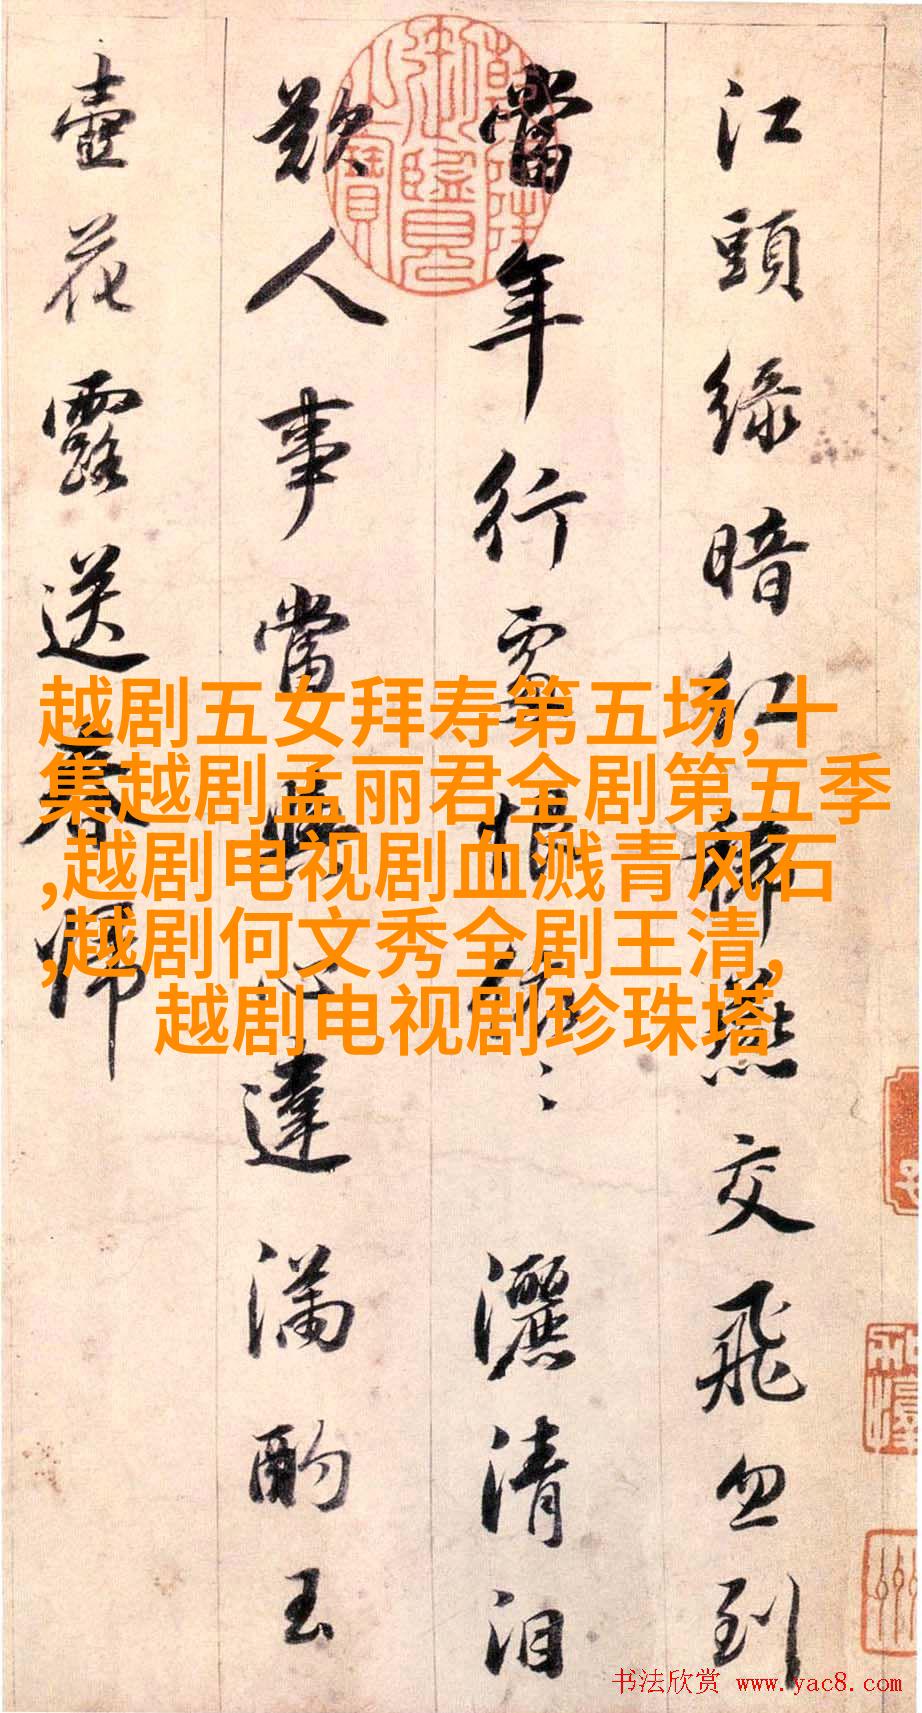 江頭綠暗紅稀燕交飛忽到
當年行處恨依々灑清泪
歎人事常與心違滿酌玉
壺花露送春歸
乾隆御覽之寶
越剧五女拜寿第五场,十
集越剧孟丽君全剧第五季
,越剧电视剧血溅青风石
,越剧何文秀全剧王清,
越剧电视剧珍珠塔
书法欣赏 www.yac8.com